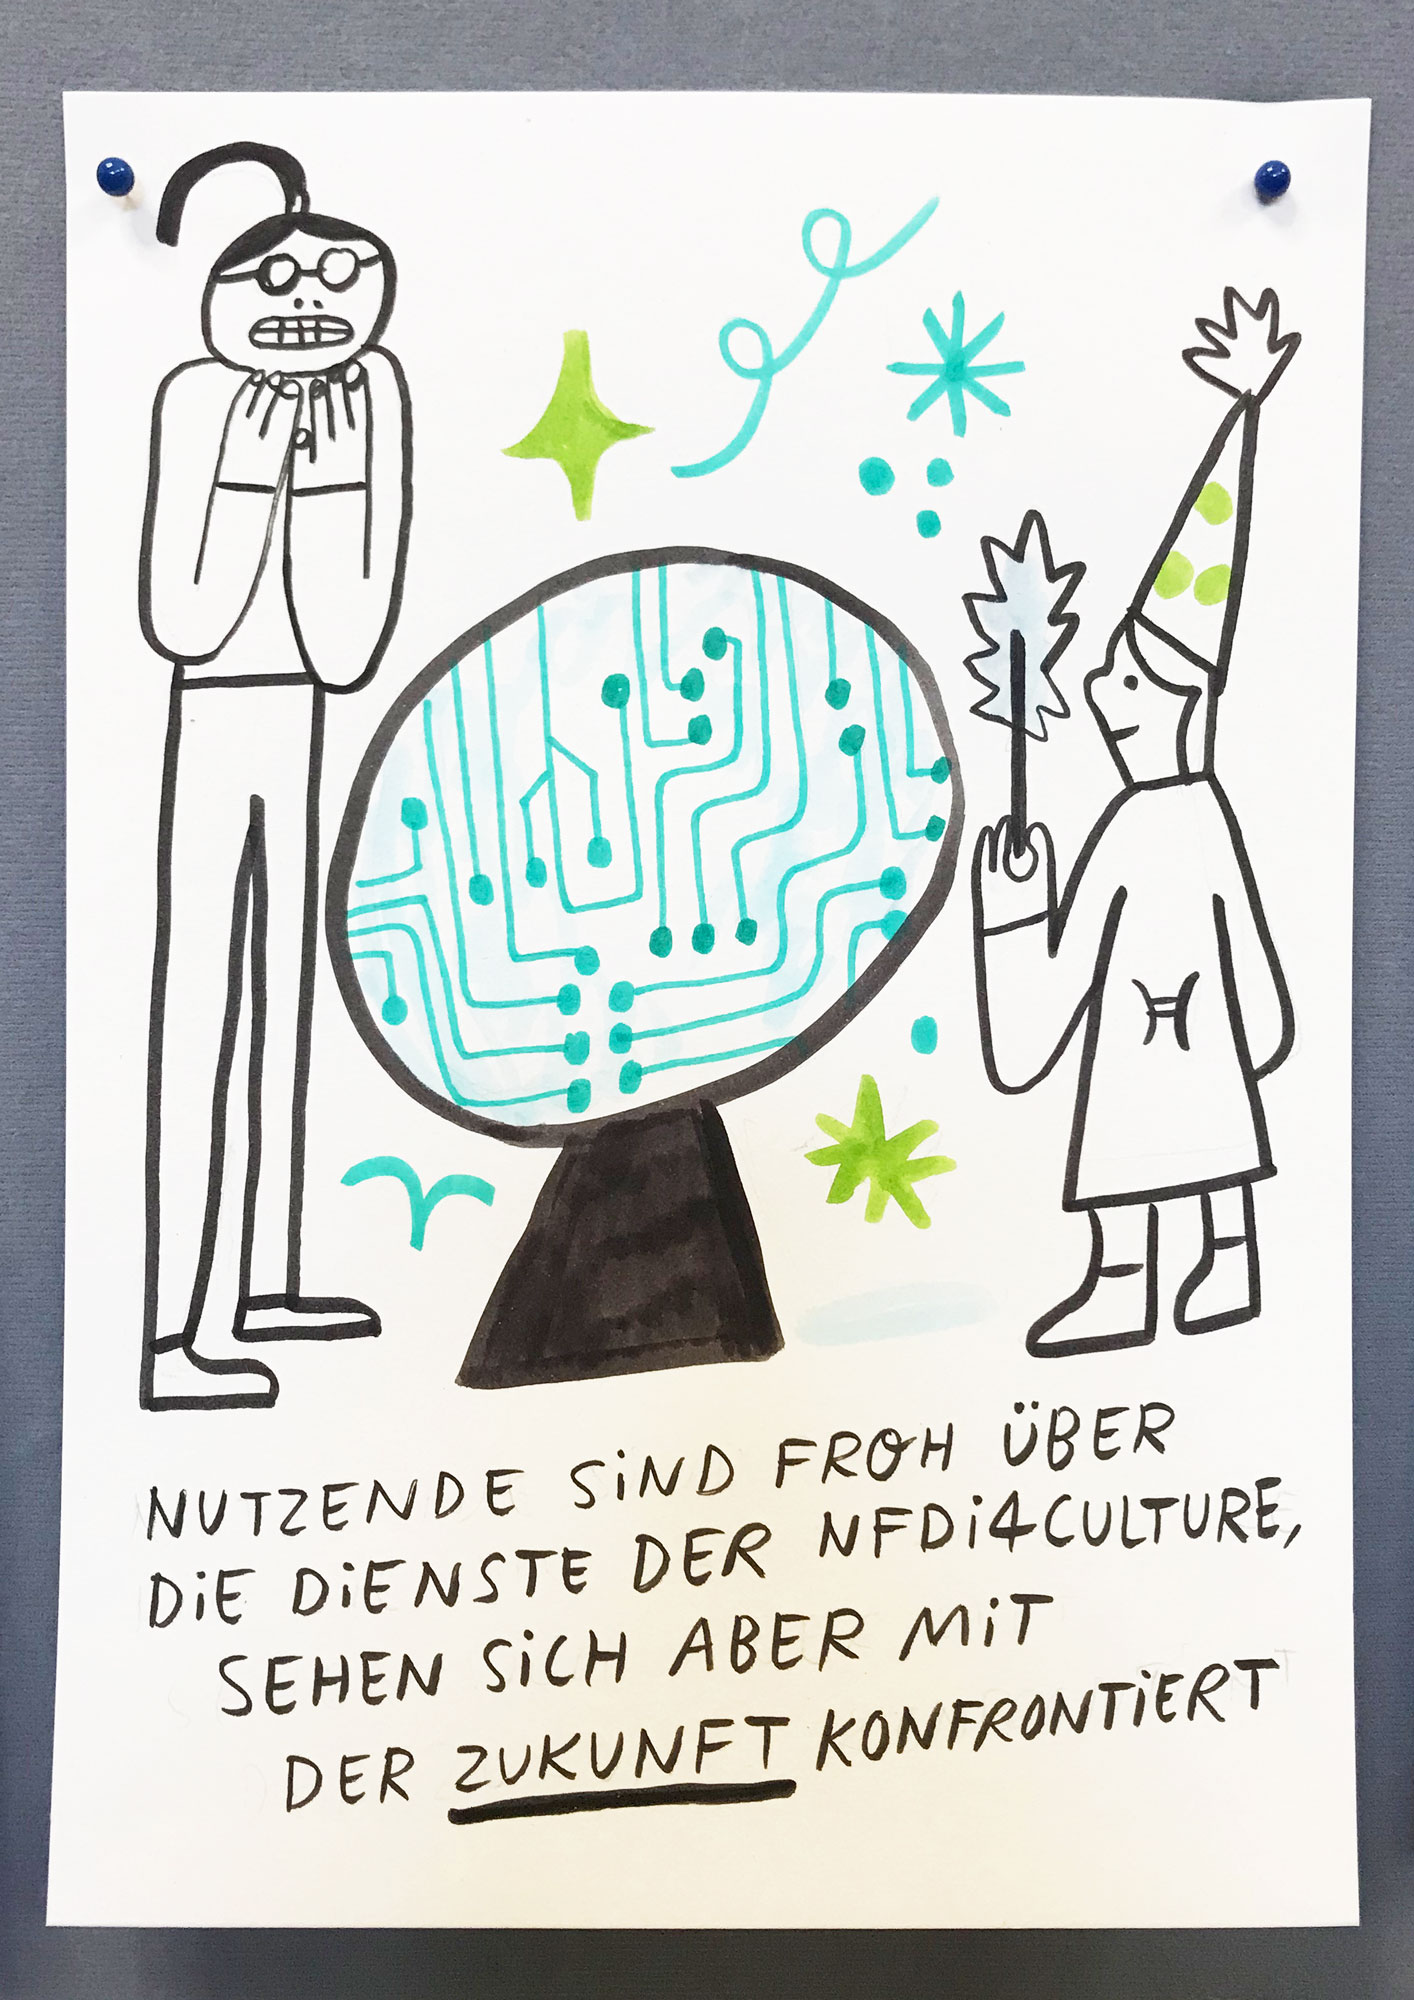 NUTZENDE SiND FROH ÜBER
DiE DiENSTE DER NFDi4CULTURE,
SEHEN SiCH ABER MiT
DER ZUKUNFT KONFRONTiERT